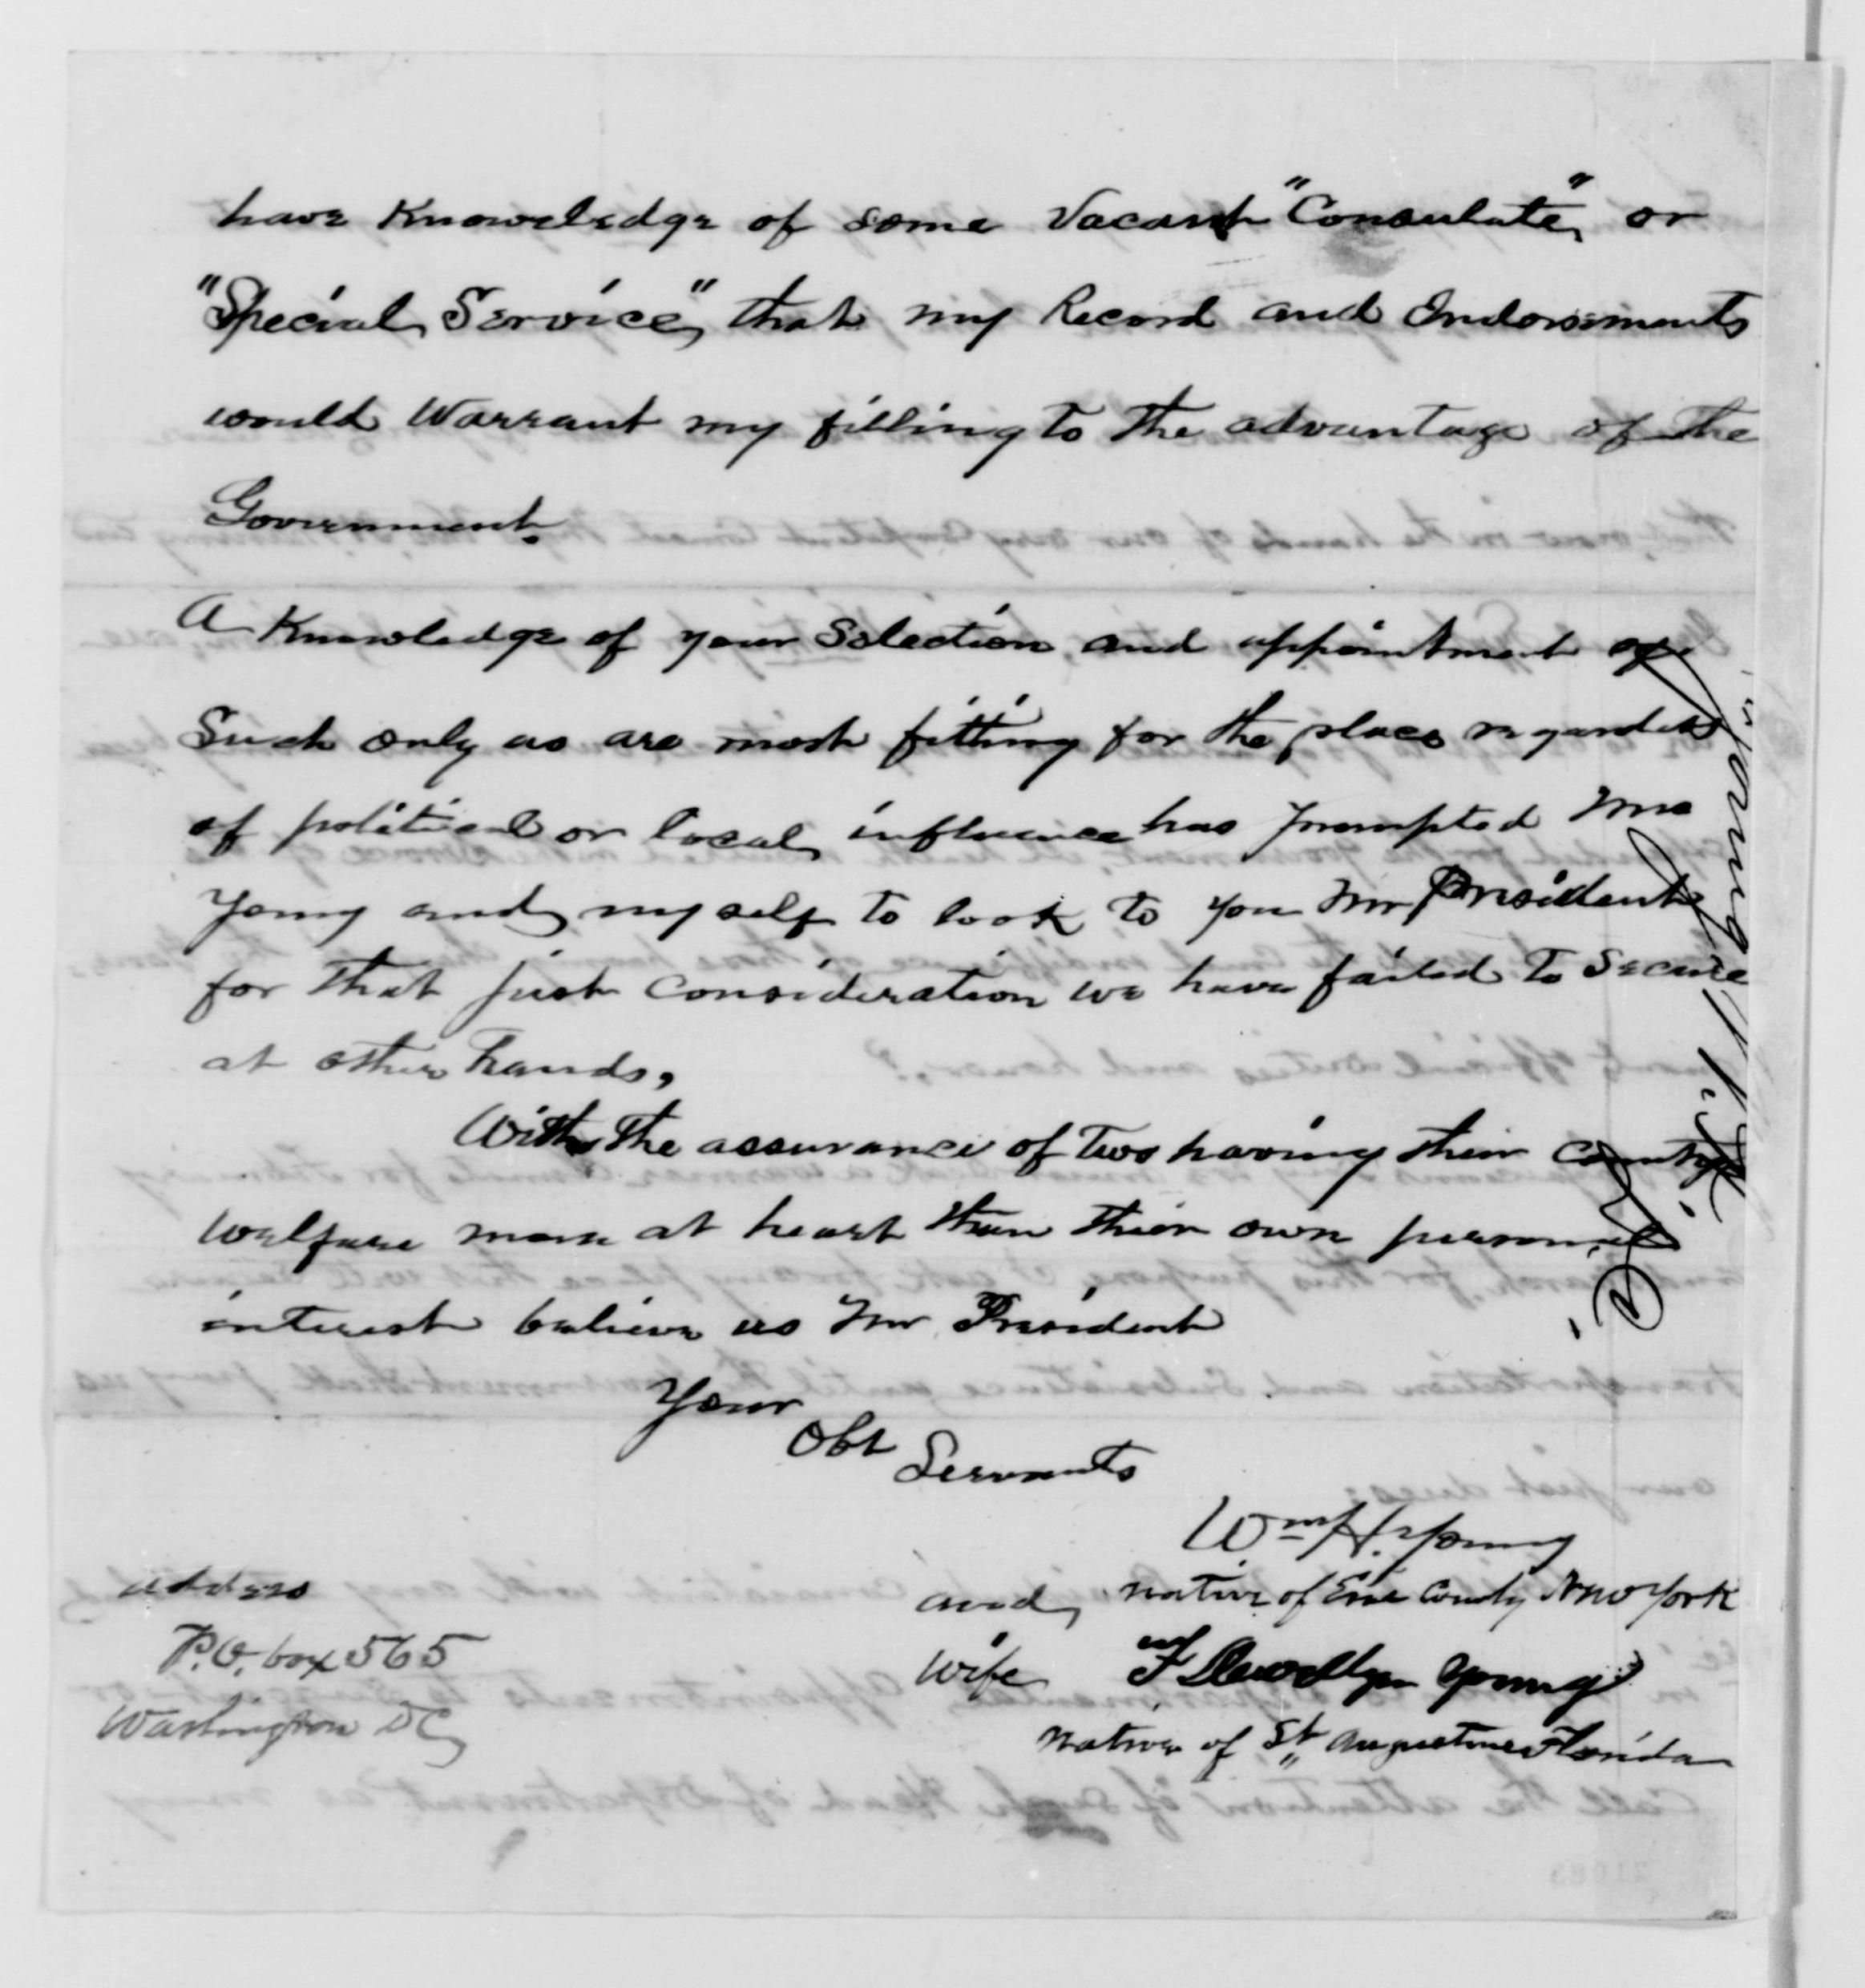 have Knoweledge of some Vacant "Consulate", or
"Special Service", that my Record and Endorsements
would Warrant my filling to the advantage of the
Government.
A Knowledge of your Selection and appointment of
Such only as are most fitting for the place regardless
of political or local influence has prompted Mrs
Young and myself to look to you Mr President
for that just consideration we have failed to secure
at other hands,
With the assurance of two having their Countrys
welfare more at heart than their own personal
interest believe us Mr President
Your
Obt Servants
Wm H. Young
and native of Erie County New York
wife F Llewellyn Young
native of St Augustine Florida
address
P.O. box 565
Washington DC
Young W. H.